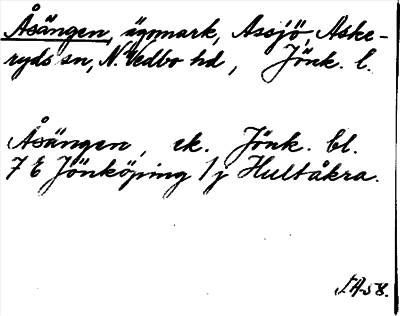 Åsängen, ägomark, Assjö, Aske-
ryds sn, N. Vedbo hd, Jönk. l.
Åsängen, ek. Jönk. bl.
7 E Jönköping 1 j Hultåkra.